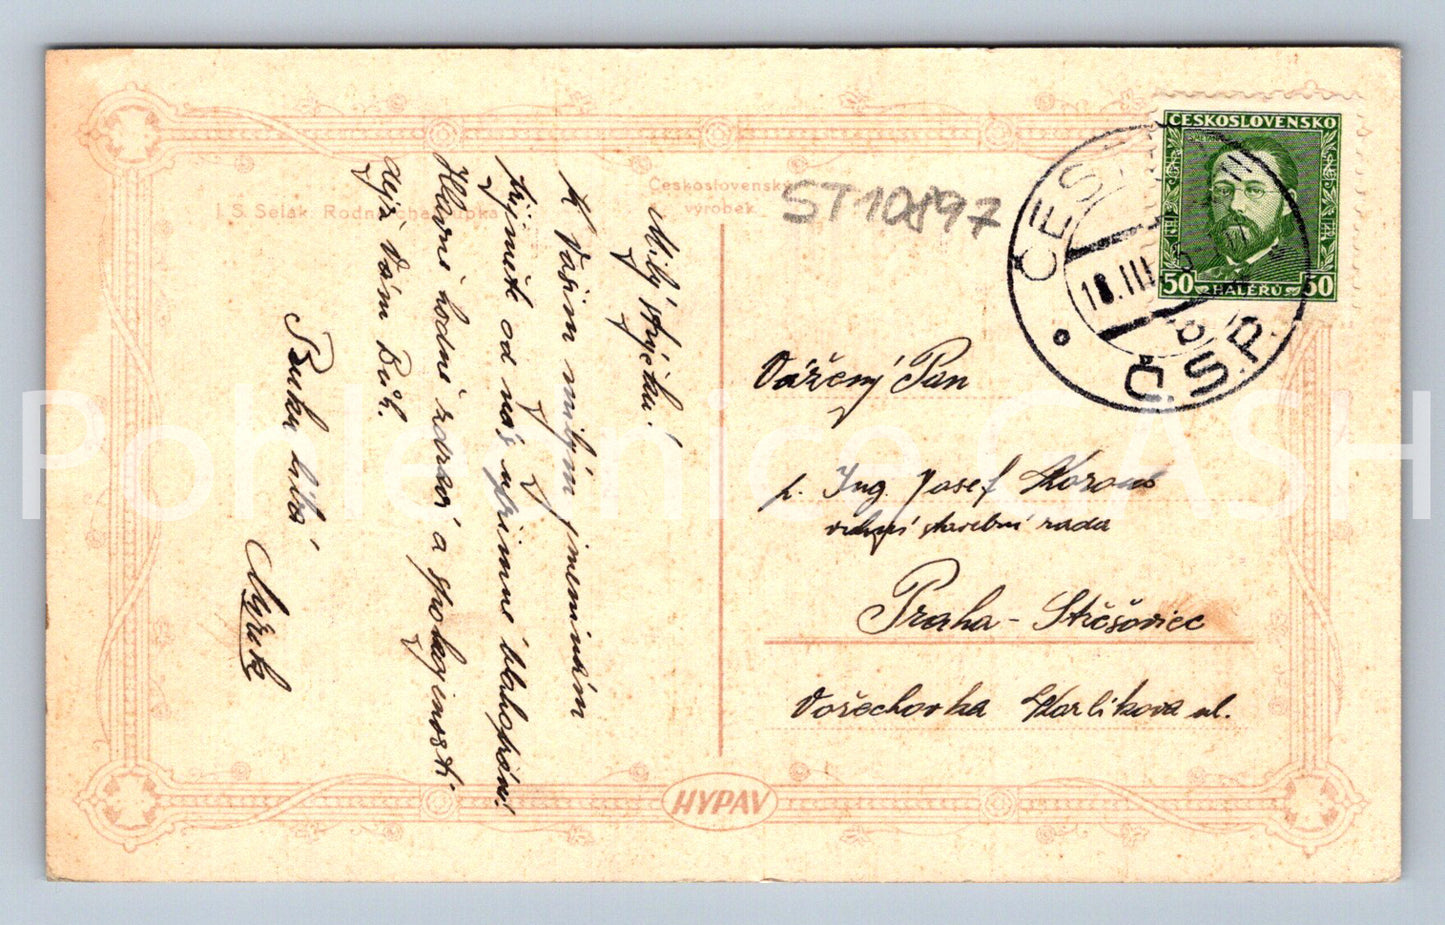 J. S. Selák: Rodná chaloupka
Československý
výrobek
ST10897
ČESKOSLOVENSKO
50 HALÉŘŮ 50
ČES
18.III.
b
Č.S.P.
Milý strýčku!
K Vašim milým jmeninám
přijměte od nás upřímné blahopřání.
Hlavně hodně zdraví a spokojenosti
dejž Vám Bůh.
Ruku líbá
Vážený Pan
p. Ing. Josef
vrchní stavební rada
Praha - Střešovice
Ořechovka Karlíkova ul.
HYPAV
Pohlednice CASH